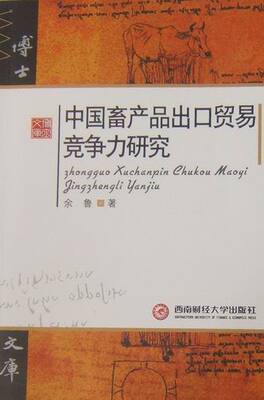 博士
中国畜产品出口贸易
竞争力研究
zhongguo Xuchanpin Chukou Maoyi
Jingzhengli Yanjiu
余 鲁 著
西南财经大学出版社
SOUTHWESTERN UNIVERSITY OF FINANCE & ECONOMICS PRESS
文库